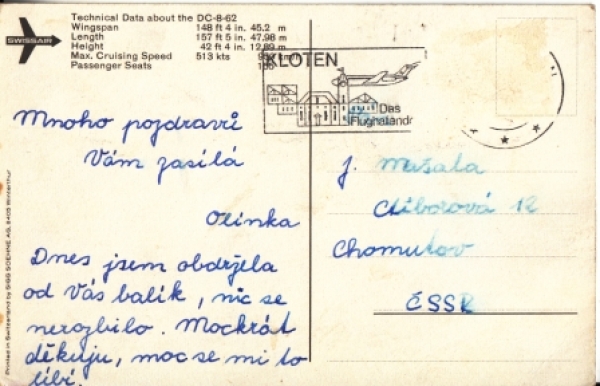 Technical Data about the DC-8-62
Wingspan 148 ft 4 in. 45.2 m
Length 157 ft 5 in. 47,98 m
Height 42 ft 4 in. 12,89 m
Max. Cruising Speed 513 kts
Passenger Seats
SWISSAIR
KLOTEN
Das
Flughafendorf
Mnoho pozdravů
Vám zasílá
Olinka
Dnes jsem obdržela
od Vás balík, nic se
nerozbilo. Mockrát
děkuju, moc se mi to
líbí.
J. Mušala
Cliborová 12
Chomutov
ČSSR
Printed in Switzerland by SIGG SOEHNE AG, 8405 Winterthur